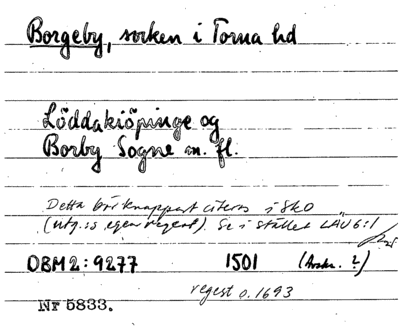 Borgeby, sorken i Torna hd
Löddakiöpinge og
Borby Sogne m. fl.
Detta bör knappast citeras i SkO
(utg:s egen regest). Se i stället LÄU 6:1
OBM2: 9277 1501 (Avskr. ?)
regest o. 1693
Nr 5833.